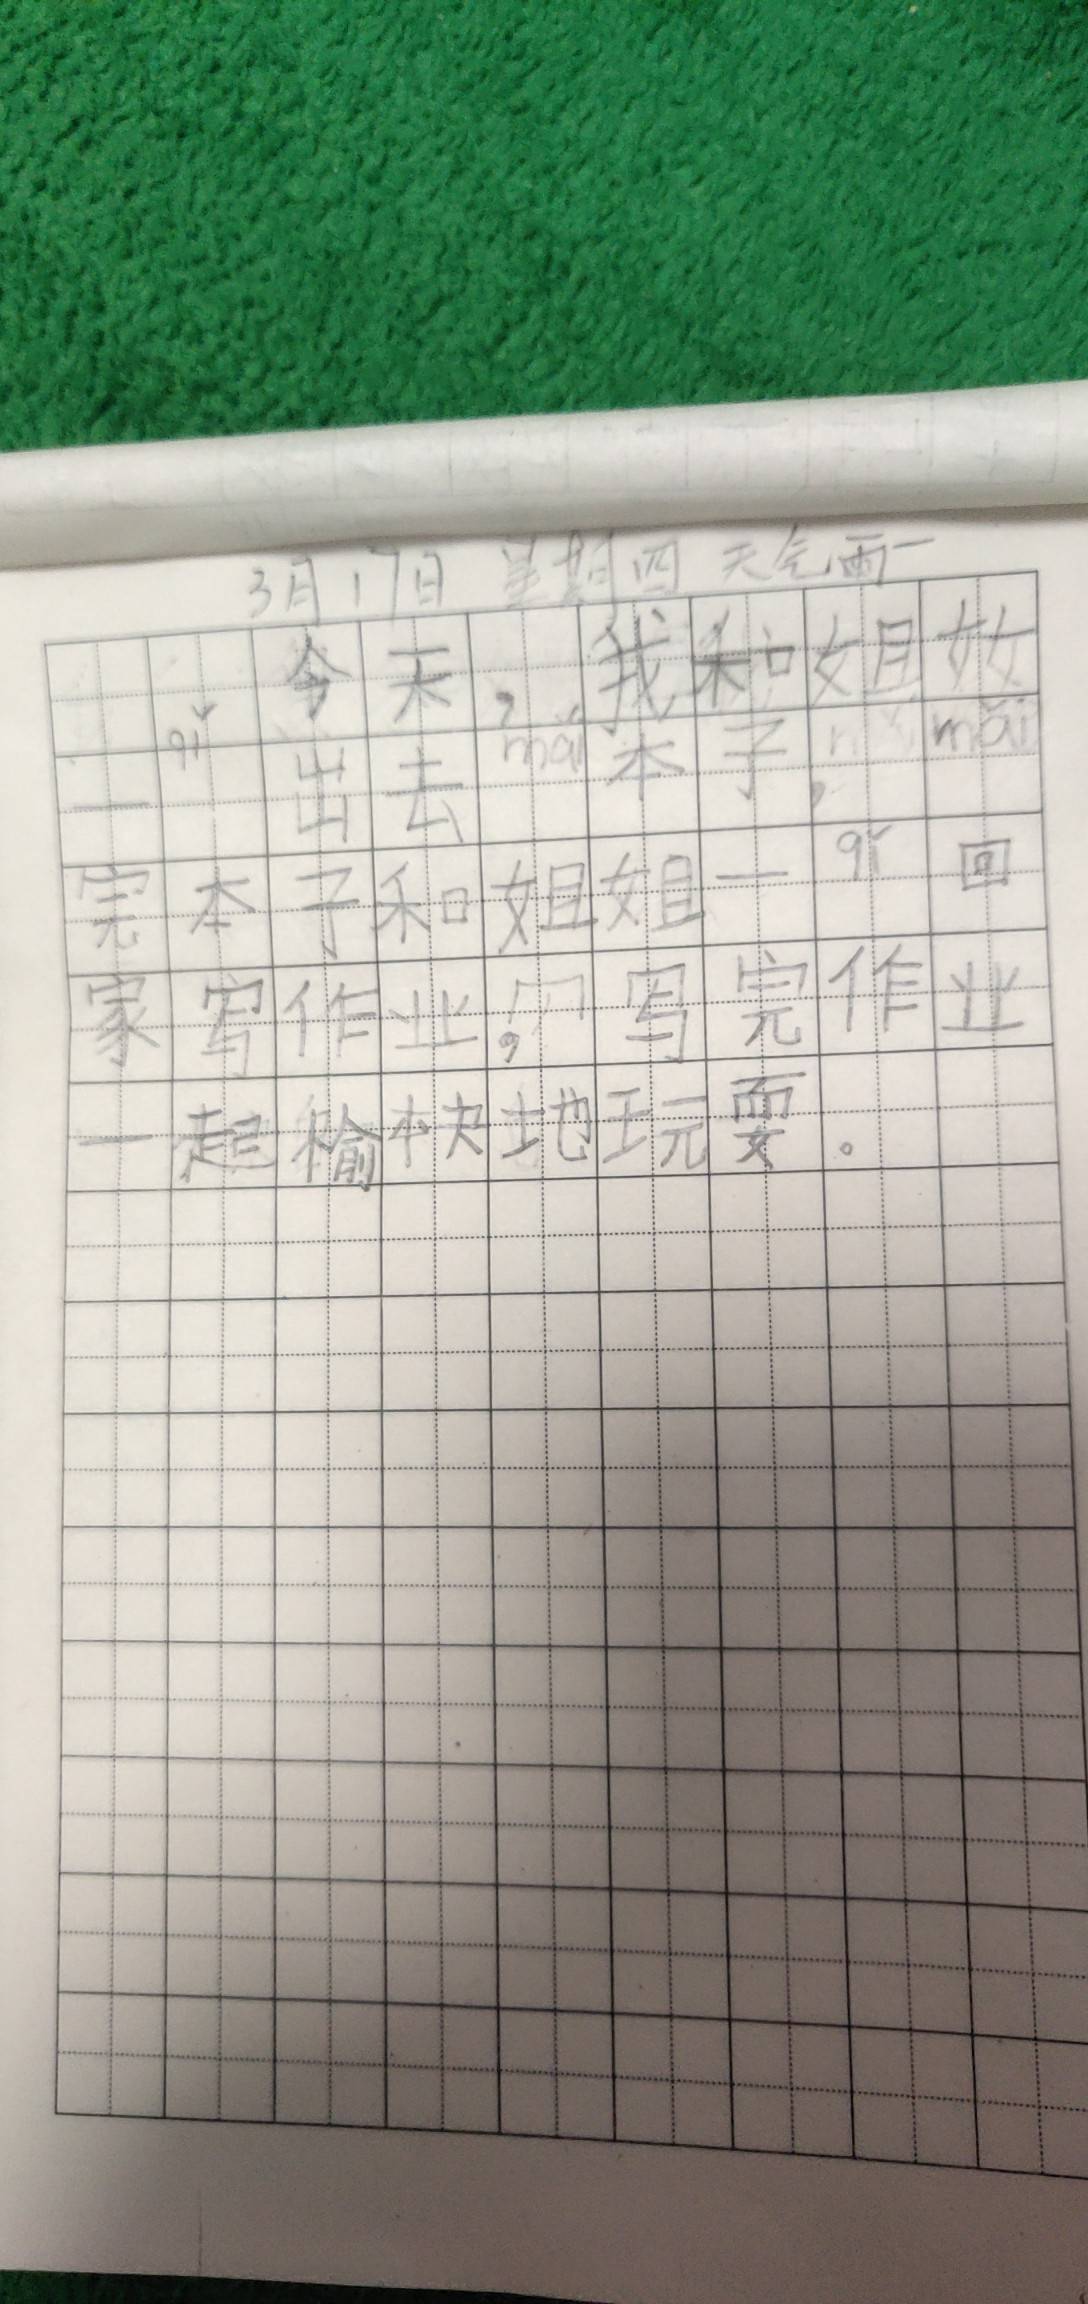 3月17日 星期四 天气雨
今天，我和姐女女
一qǐ出去mǎi本子，mǎi
完本子和姐姐一qǐ回
家写作业，写完作业
一起愉快地玩耍。